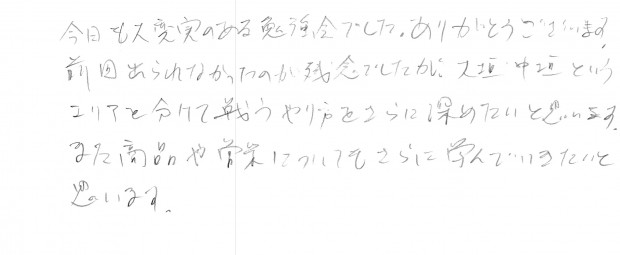 今日も大変実のある勉強会でした。ありがとうございます。
前回出られなかったのが残念でしたが、大垣 中垣という
エリアを分けて戦うやり方をさらに深めたいと思います。
また商品や営業についてもさらに学んでいきたいと
思います。